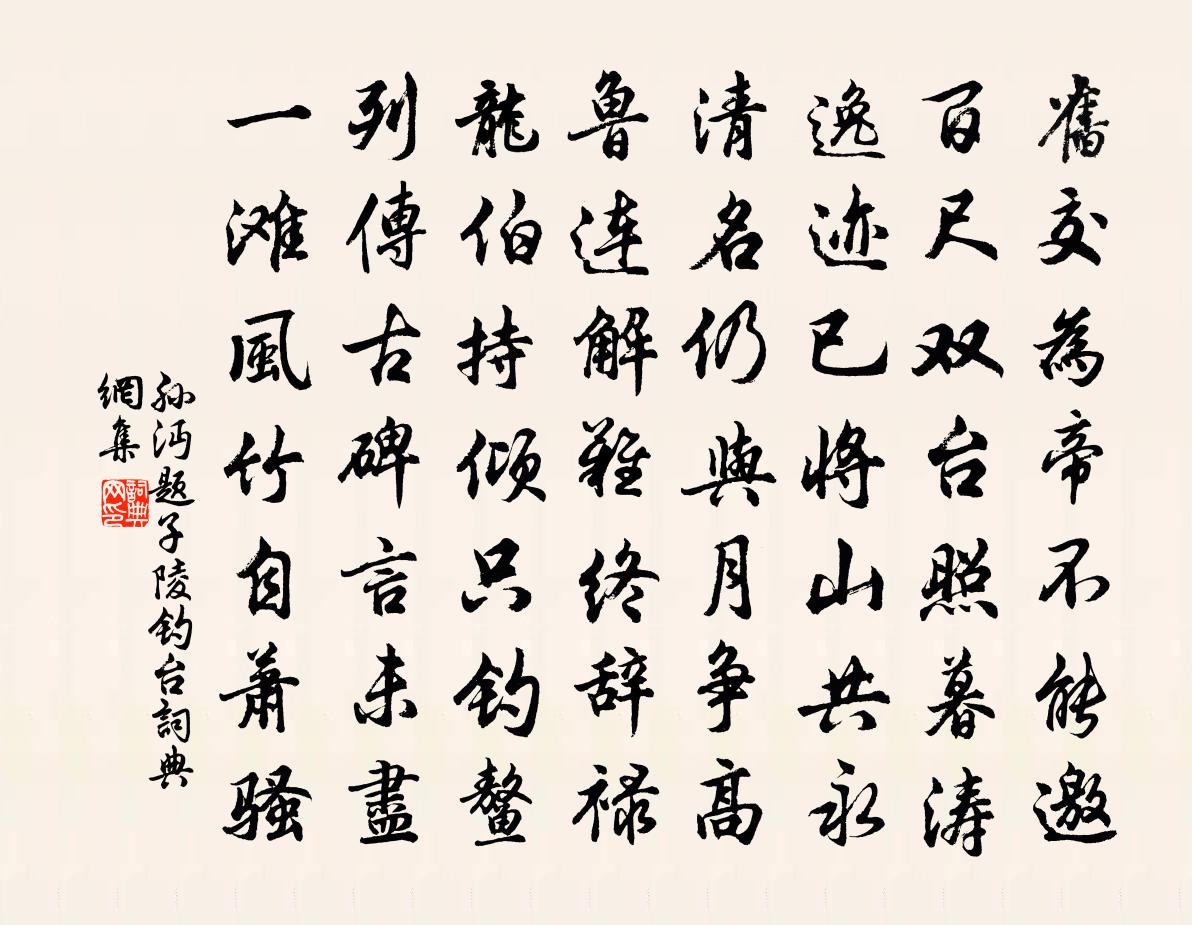 舊交為帝不能邀
百尺双台照暮涛
逸迹已将山共永
清名仍與月争高
鲁连解難终辞禄
龍伯持倾只钓鳌
列傳古碑言未盡
一滩風竹自萧骚
孙沔题子陵钓台詞典
網集
詞典
网印